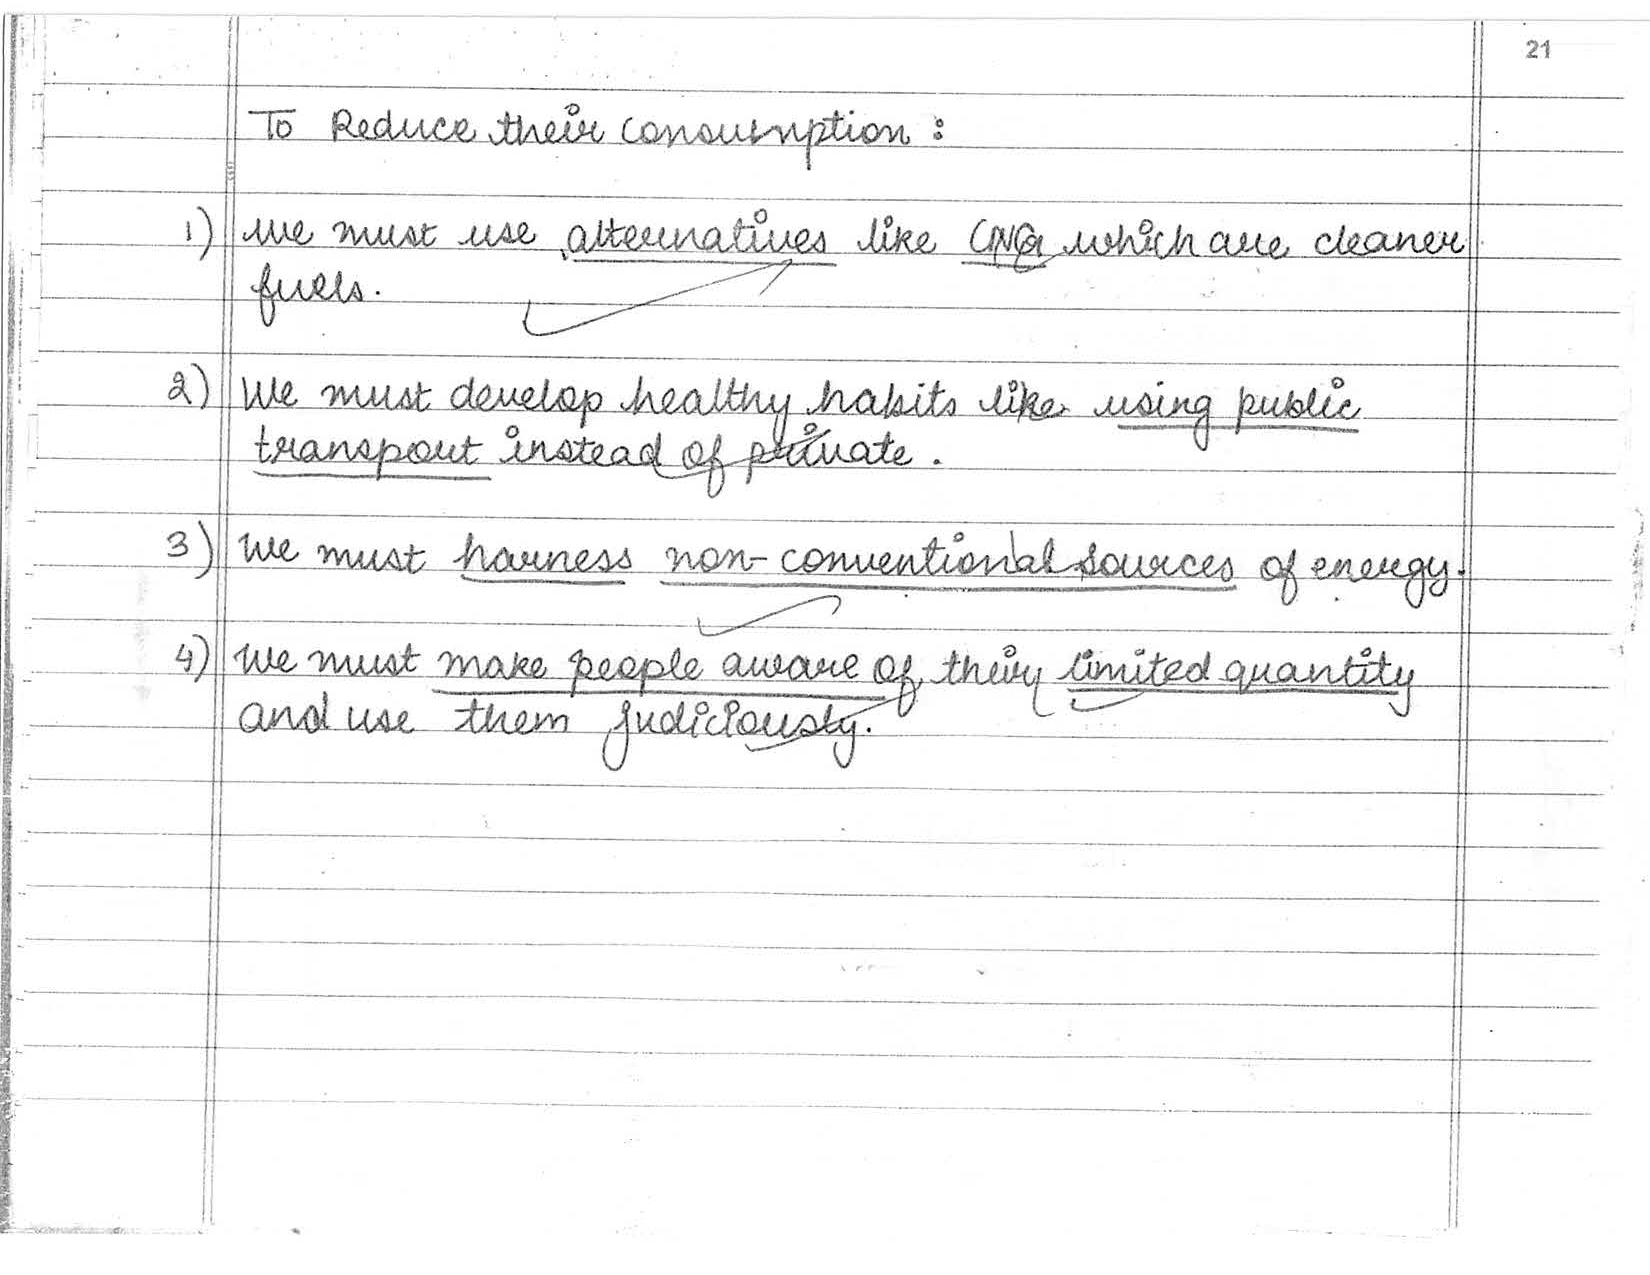 21
To Reduce their consumption :
1) We must use alternatives like CNG which are cleaner
fuels.
2) We must develop healthy habits like using public
transport instead of private.
3) We must harness non-conventional sources of energy.
4) We must make people aware of their limited quantity
and use them judiciously.